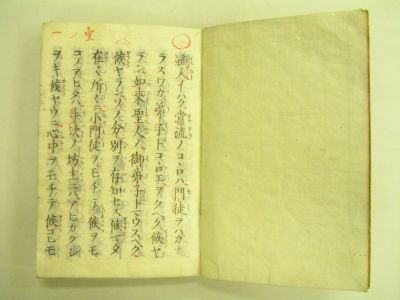 或人イハク當流ノコヽロハ門徒ヲハカナ
ラスワカ弟子トコヽロエヲクヘク候ヤ
ラン如來聖人ノ御弟子トマウスヘク
候ヤランソノ分別ヲ存知セス候マタ
在々所々ニ小門徒ヲモチテ候ヲモ
コノアヒタハ手次ノ坊主ニハアヒカクシ
ヲキ候ヤウニ心中ヲモチテ候コレモ